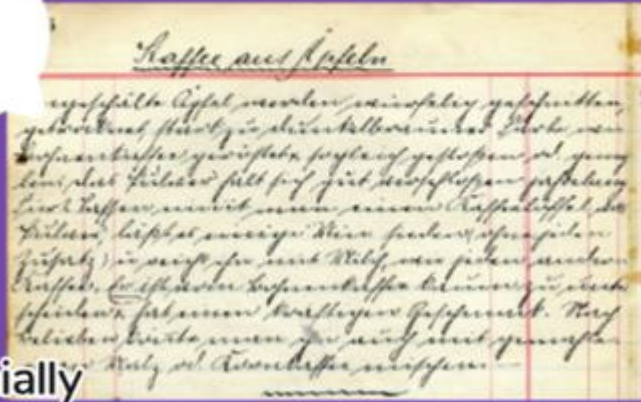 Kaffee aus Äpfeln
ungeschälte Äpfel werden würfelig geschnitten,
getrocknet, stark zu dunkelbrauner Farbe wie
Bohnenkaffee geröstet, sogleich gestoßen od. gemah
len, das Pulver hält sich gut verschloßen jahrelang
Für 2 Tassen nimmt man einen Kaffeelöffel
Pulver, läßt es einige Min sieden, ohne jeden
Zusatz, u reicht ihn mit Milch, wie jeden andern
Kaffee. Er ist vom Bohnenkaffee kaum zu unter
scheiden, hat einen kräftigen Geschmack. Nach
Belieben man ihn auch mit
Malz od. Kornkaffee mischen.
ially